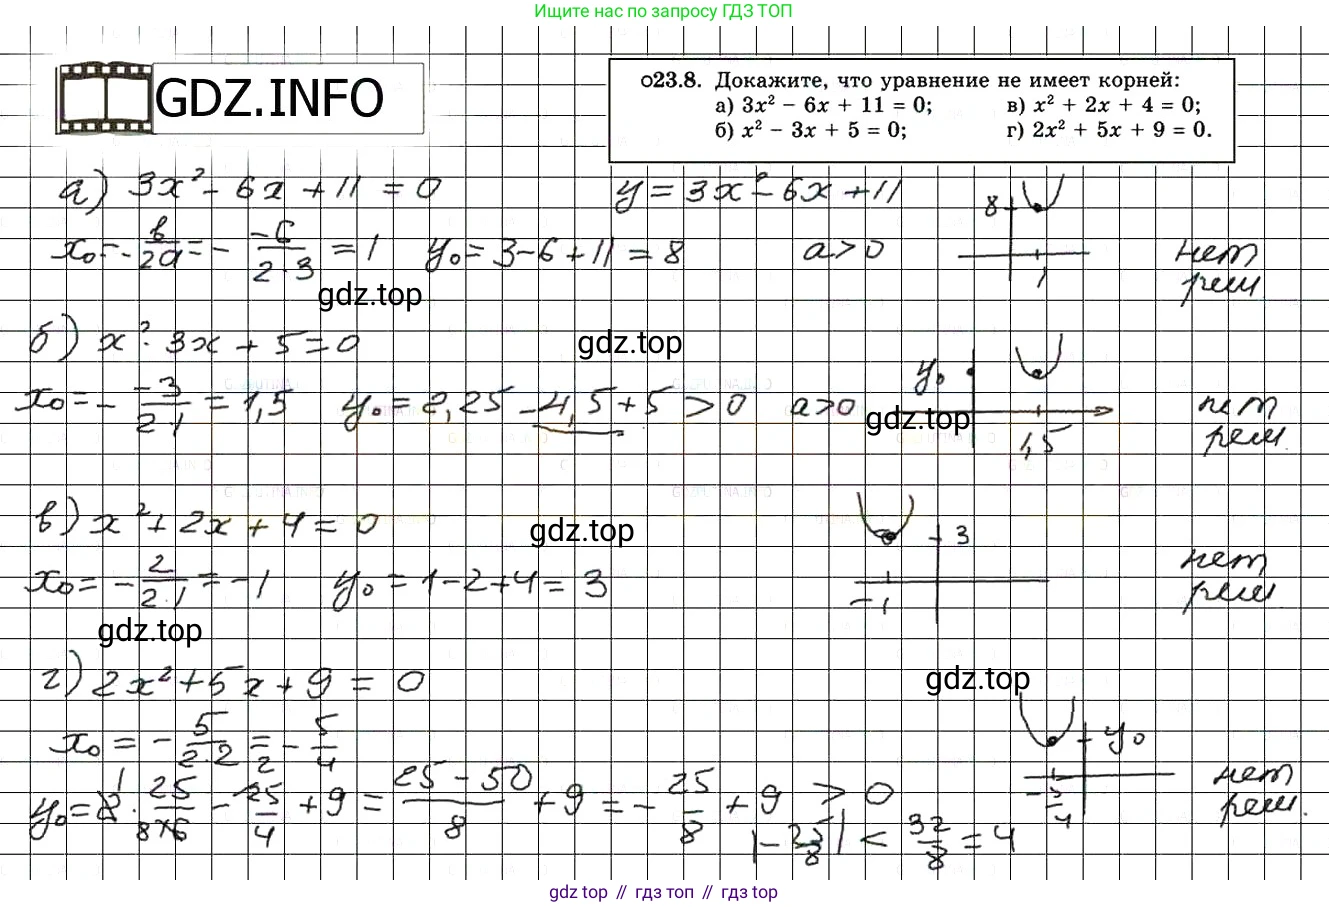 Ищите нас по запросу ГДЗ ТОП
GDZ.INFO
О23.8. Докажите, что уравнение не имеет корней:
а) 3x² − 6x + 11 = 0; в) x² + 2x + 4 = 0;
б) x² − 3x + 5 = 0; г) 2x² + 5x + 9 = 0.
а) 3x² − 6x + 11 = 0 y = 3x² − 6x + 11 8
x₀ = −в/2a = − −6/2·3 = 1 y₀ = 3−6+11 = 8 a>0 1 нет
реш
gdz.top
б) x² · 3x + 5 = 0 gdz.top y₀
x₀ = − −3/2·1 = 1,5 y₀ = 2,25 − 4,5 + 5 > 0 a>0 gdz.top 1,5 нет
реш.
в) x² + 2x + 4 = 0 gdz.top 3
x₀ = − 2/2·1 = −1 y₀ = 1−2+4 = 3 −1 нет
реш.
gdz.top
г) 2x² + 5x + 9 = 0 gdz.top
x₀ = − 5/2·2 = − 5/4 y₀
y₀ = 2 · 25/16 − 25/4 + 9 = 25 − 50/8 + 9 = − 25/8 + 9 > 0 −5/4 нет
реш.
|−25/8| < 32/8 = 4
gdz top // гдз топ // гдз top